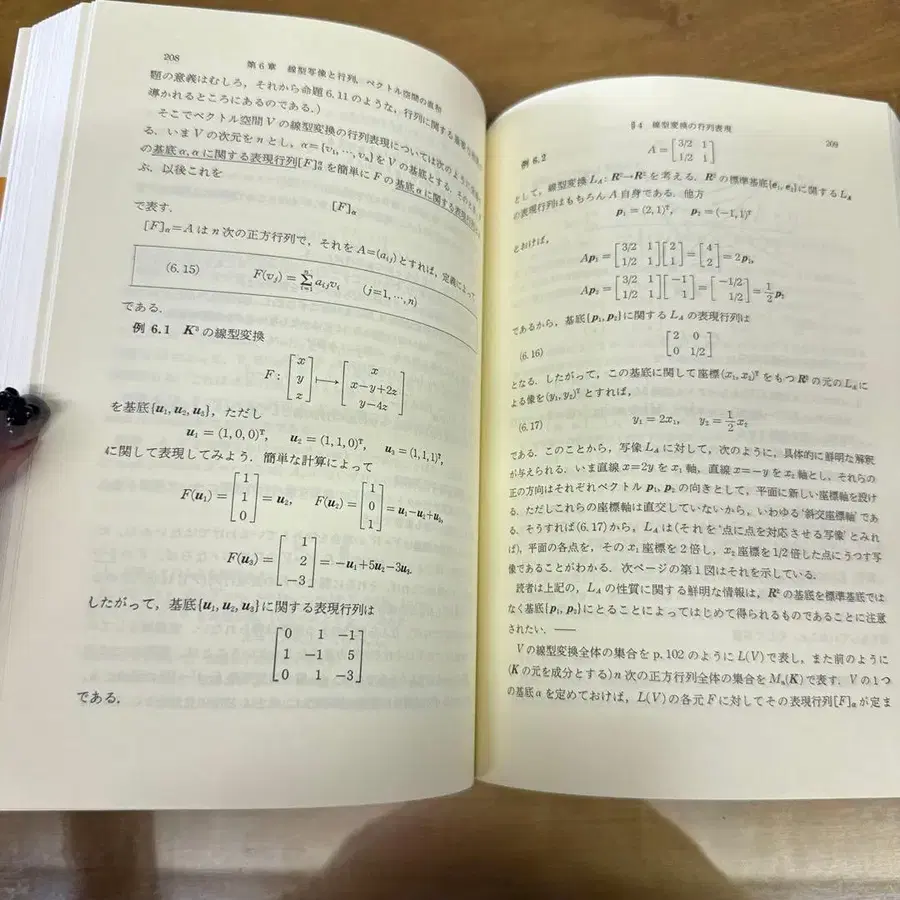 208
第6章 線型写像と行列,ベクトル空間の直和
題の意義はむしろ,それから命題6.11のような,行列に関する
導かれるところにあるのである.)
そこでベクトル空間Vの線型変換の行列表現については次のように
る.いまVの次元をnとし,α={v₁,…,vₙ}をVの基底とする.
の基底α,αに関する表現行列[F]ᵅᵅを簡単にFの基底αに関する表現行列
ぶ.以後これを
[F]α
で表す.
[F]α=Aはn次の正方行列で,それをA=(aᵢⱼ)とすれば,定義によって
(6.15) F(vⱼ)=∑ⁿᵢ₌₁ aᵢⱼvᵢ (j=1,…,n)
である.
例 6.1 K³の線型変換
F: [x; y; z] ↦ [x; x−y+2z; y−4z]
を基底{u₁,u₂,u₃},ただし
u₁=(1,0,0)ᵀ, u₂=(1,1,0)ᵀ, u₃=(1,1,1)ᵀ,
に関して表現してみよう.簡単な計算によって
F(u₁)=[1; 1; 0]=u₂, F(u₂)=[1; 0; 1]=u₁−u₂+u₃,
F(u₃)=[1; 2; −3]=−u₁+5u₂−3u₃.
したがって,基底{u₁,u₂,u₃}に関する表現行列は
[0 1 −1; 1 −1 5; 0 1 −3]
である.
§4 線型変換の行列表現
209
例 6.2 A=[3/2 1; 1/2 1]
として,線型変換 L_A: R²→R² を考える.R²の標準基底{e₁,e₂}に関するL_A
の表現行列はもちろんA自身である.他方
p₁=(2,1)ᵀ, p₂=(−1,1)ᵀ
とおけば,
Ap₁=[3/2 1; 1/2 1][2; 1]=[4; 2]=2p₁,
Ap₂=[3/2 1; 1/2 1][−1; 1]=[−1/2; 1/2]=1/2 p₂
であるから,基底{p₁,p₂}に関するL_Aの表現行列は
(6.16) [2 0; 0 1/2]
となる.したがって,この基底に関して座標(x₁,x₂)ᵀをもつR²の元のL_Aに
よる像を(y₁,y₂)ᵀとすれば,
(6.17) y₁=2x₁, y₂=1/2 x₂
である.このことから,写像L_Aに対して,次のように,具体的に鮮明な解釈
が与えられる.いま直線x=2yをx₁軸,直線x=−yをx₂軸とし,それらの
正の方向はそれぞれベクトルp₁,p₂の向きとして,平面に新しい座標軸を設け
る.ただしこれらの座標軸は直交していないから,いわゆる‘斜交座標軸’であ
る.そうすれば(6.17)から,L_Aは(それを‘点に点を対応させる写像’とみれ
ば),平面の各点を,そのx₁座標を2倍し,x₂座標を1/2倍した点にうつす写
像であることがわかる.次ページの第1図はそれを示している.
読者は上記の,L_Aの性質に関する鮮明な情報は,R²の基底を標準基底では
なく基底{p₁,p₂}にとることによってはじめて得られるものであることに注意
されたい.——
Vの線型変換全体の集合をp.102のようにL(V)で表し,また前のように
(Kの元を成分とする)n次の正方行列全体の集合をMₙ(K)で表す.Vの1つ
の基底αを定めておけば,L(V)の各元Fに対してその表現行列[F]αが定ま